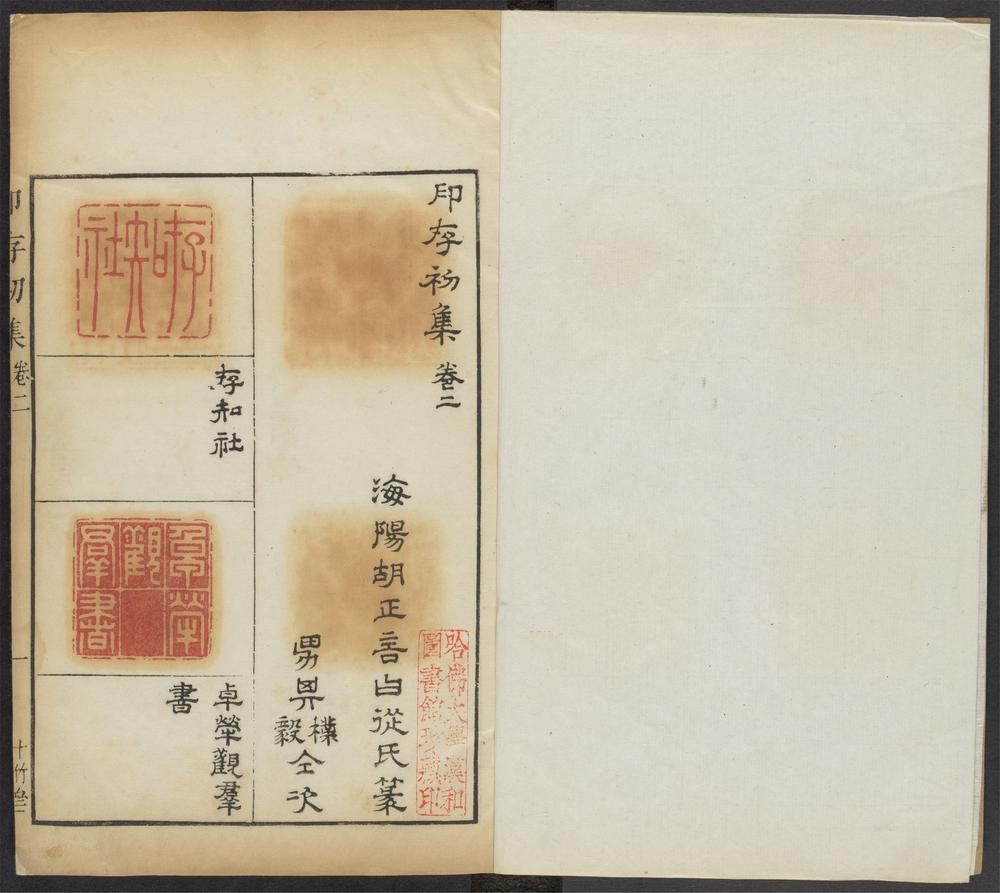 印存初集 卷二
海陽胡正言曰從氏篆
男其樸毅仝次
哈佛大學漢和
圖書館珍藏印
存知社
存知社
卓犖觀羣書
卓犖觀羣
書
印存初集 卷二 一 十竹齋